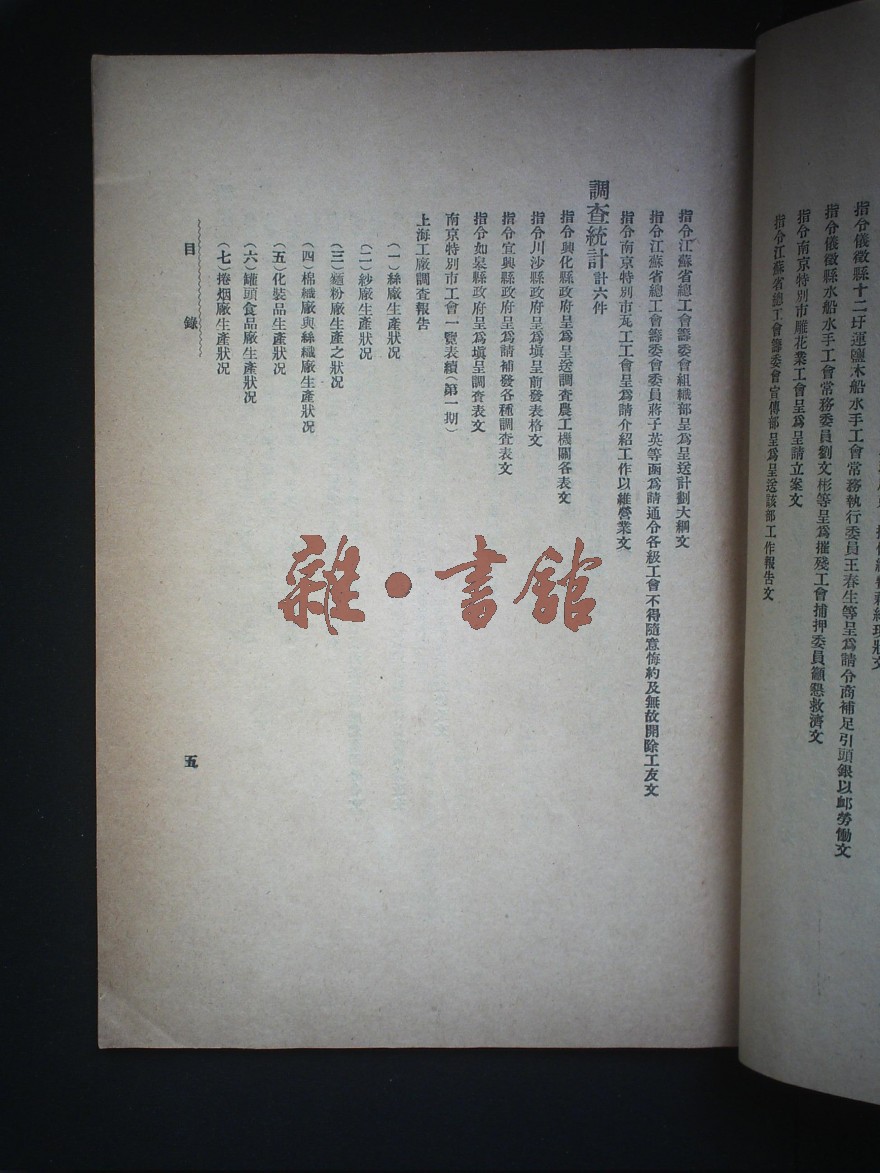 指令儀徵縣十二圩運鹽木船水手工會常務執行委員王春生等呈爲請令商補足引頭銀以卹勞働文
指令儀徵縣水船水手工會常務委員劉文彬等呈爲摧殘工會捕押委員籲懇救濟文
指令南京特別市雕花業工會呈爲呈請立案文
指令江蘇省總工會籌委會宣傳部呈爲呈送該部工作報告文
指令江蘇省總工會籌委會組織部呈爲呈送計劃大綱文
指令江蘇省總工會籌委會委員蔣子英等函爲請通令各級工會不得隨意悔約及無故開除工友文
指令南京特別市瓦工工會呈爲請介紹工作以維營業文
調查統計 計六件
指令興化縣政府呈爲呈送調查農工機關各表文
指令川沙縣政府呈爲填呈前發表格文
指令宜興縣政府呈爲請補發各種調查表文
指令如皋縣政府呈爲填呈調查表文
南京特別市工會一覽表續(第一期)
上海工廠調查報告
(一)絲廠生產狀况
(二)紗廠生產狀况
(三)麵粉廠生產之狀况
(四)棉織廠與絲織廠生產狀况
(五)化裝品生產狀况
(六)罐頭食品廠生產狀况
(七)捲烟廠生產狀况
目錄
五
雜·書館